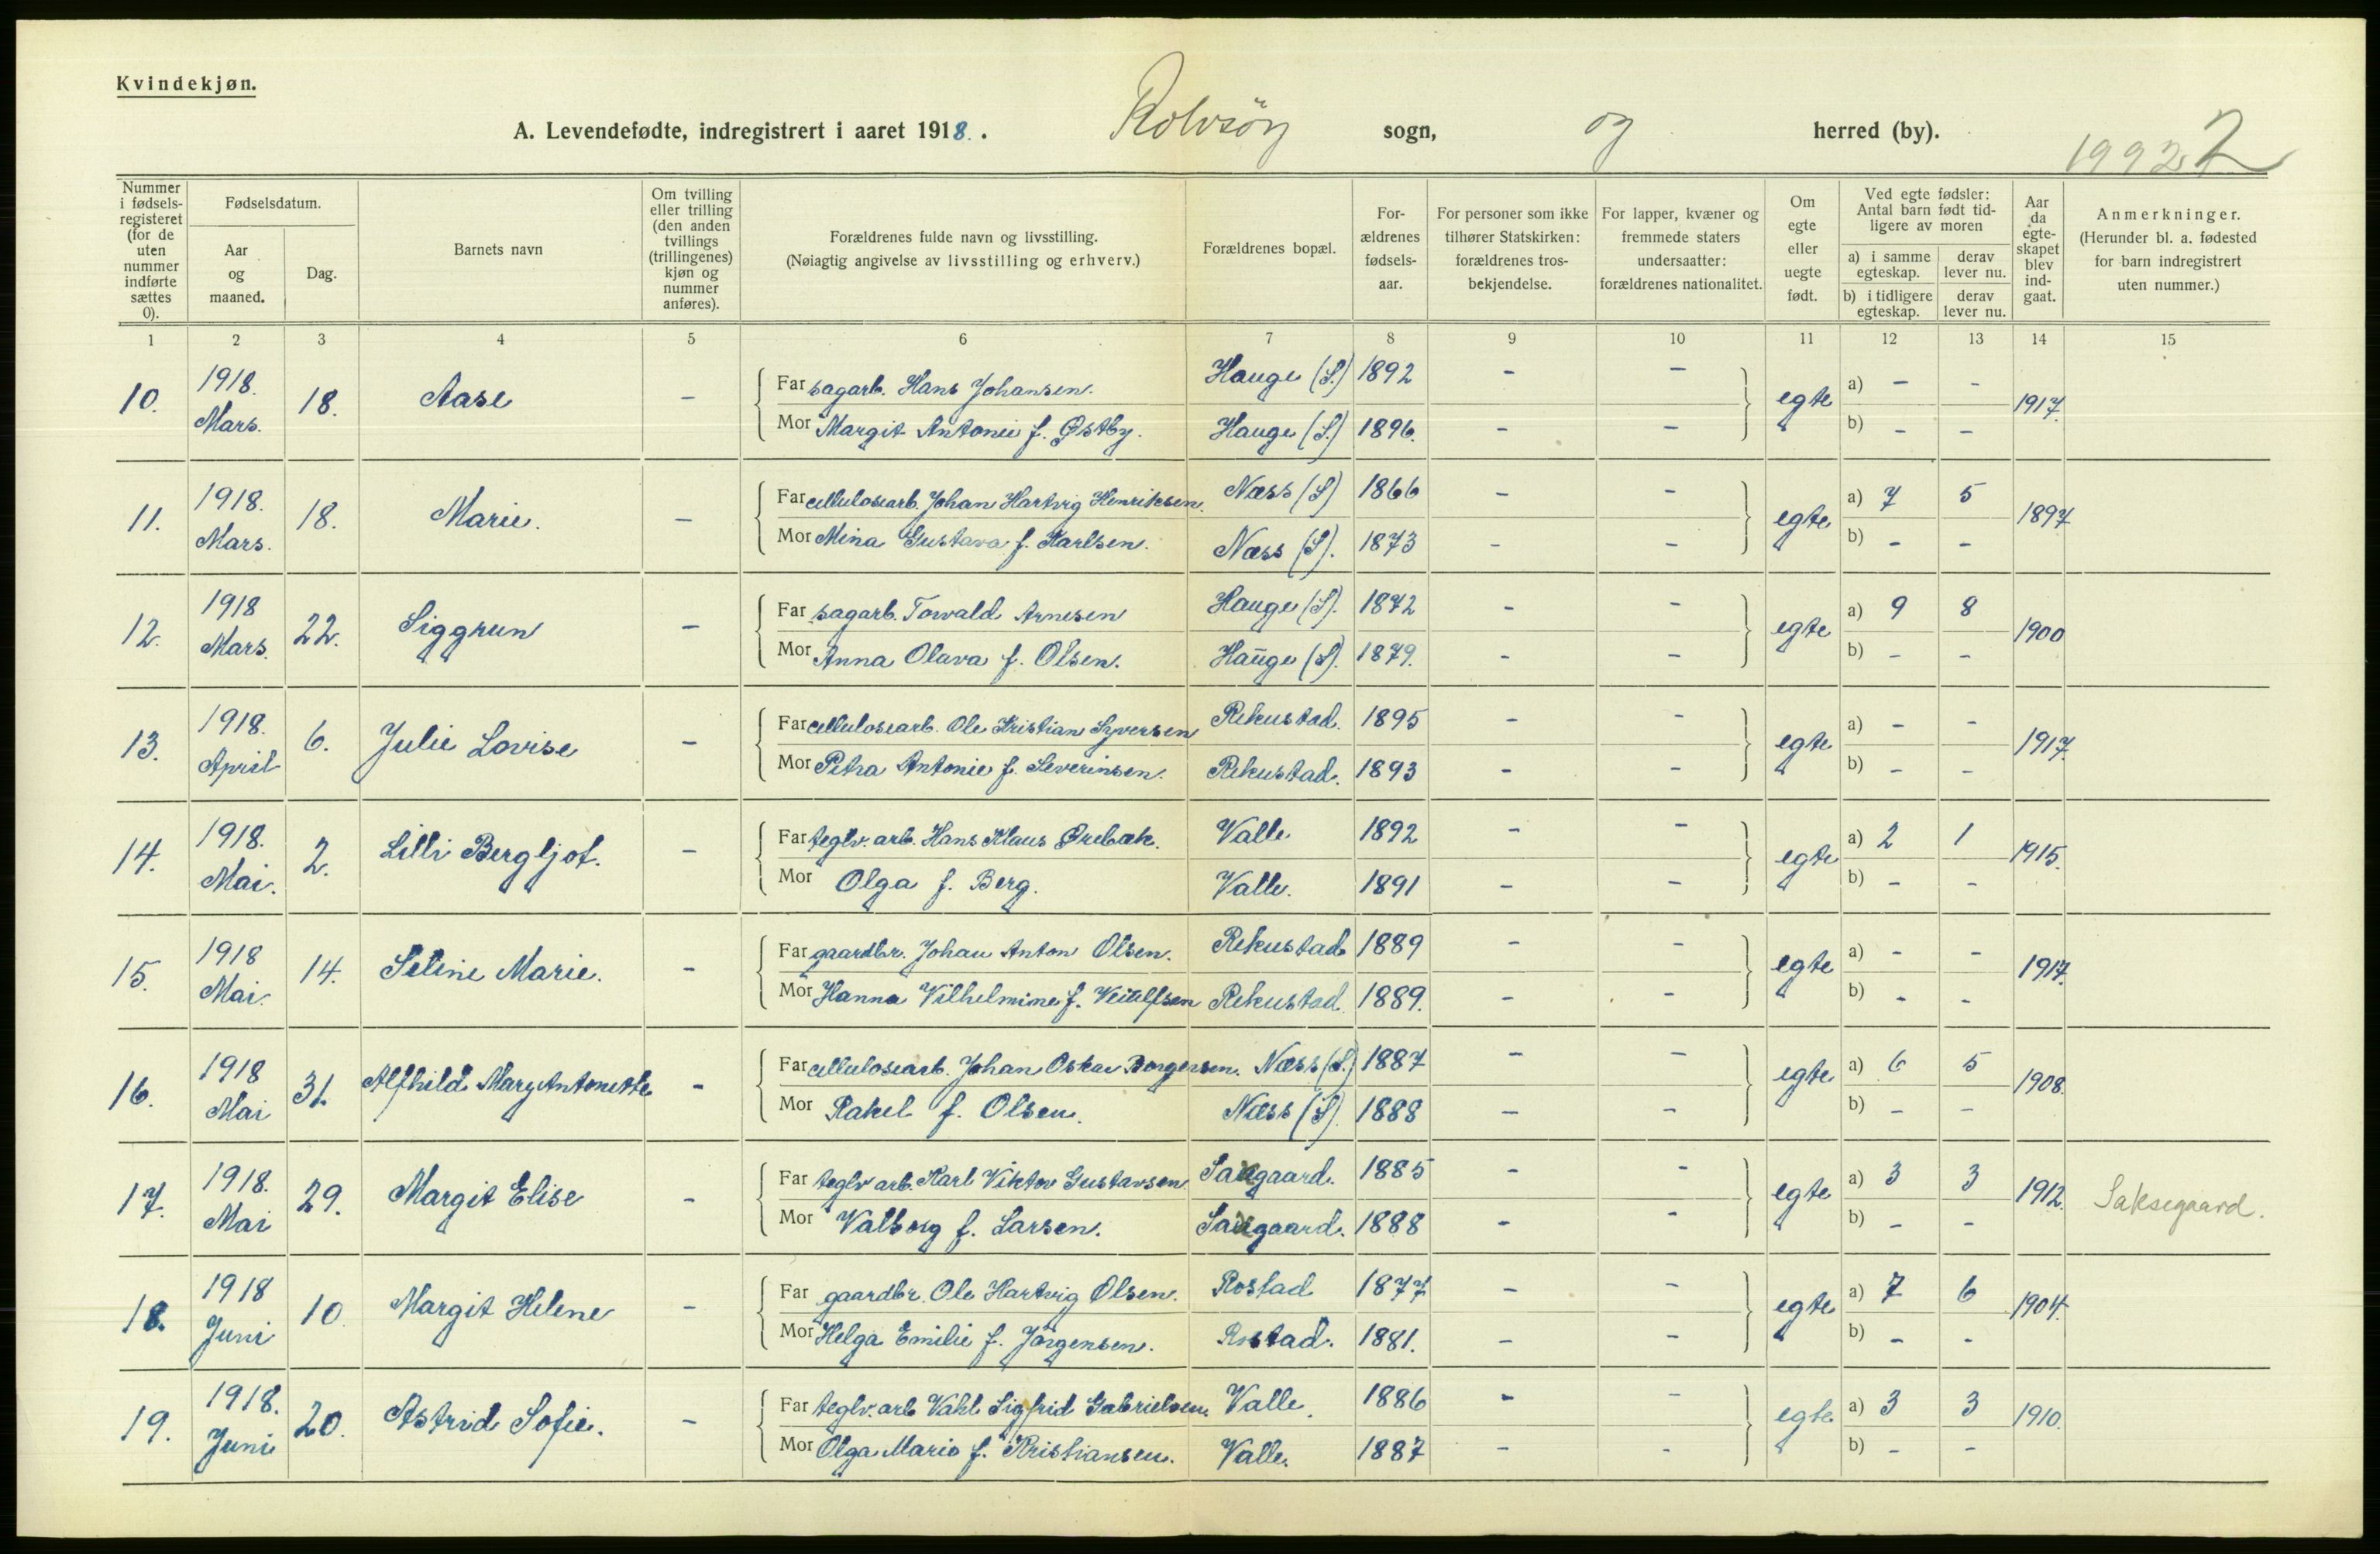 Kvindekjøn.
A. Levendefødte, indregistrert i aaret 1918. Rolvsöy sogn, og herred (by).
19922 2
Nummer i fødsels-registeret (for de uten nummer indførte sættes 0).
Fødselsdatum.
Aar og maaned.
Dag.
Barnets navn
Om tvilling eller trilling (den anden tvillings (trillingenes) kjøn og nummer anføres).
Forældrenes fulde navn og livsstilling.
(Nøiagtig angivelse av livsstilling og erhverv.)
Forældrenes bopæl.
For-ældrenes fødsels-aar.
For personer som ikke tilhører Statskirken: forældrenes tros-bekjendelse.
For lapper, kvæner og fremmede staters undersaatter: forældrenes nationalitet.
Om egte eller uegte født.
Ved egte fødsler: Antal barn født tid-ligere av moren
a) i samme egteskap. derav lever nu.
b) i tidligere egteskap. derav lever nu.
Aar da egte-skapet blev ind-gaat.
Anmerkninger.
(Herunder bl. a. fødested for barn indregistrert uten nummer.)
1 2 3 4 5 6 7 8 9 10 11 12 13 14 15
10. 1918. Mars. 18. Aase - Far sagarb. Hans Johansen. Hauge (S.) 1892 - - egte a) - - 1917.
Mor Margit Antonie f. Østby. Hauge (S.) 1896. - - b) - -
11. 1918. Mars. 18. Marie. - Far cellulosearb. Johan Hartvig Henriksen. Næss (S) 1866 - - egte a) 7 5 1897
Mor Mina Gustava f. Karlsen. Næss (S). 1873 - - b) - -
12. 1918 Mars. 22. Siggrun - Far sagarb. Torvald Arnesen Hauge (S). 1872 - - egte a) 9 8 1900
Mor Anna Olava f. Olsen. Hauge (S). 1879. - - b) - -
13. 1918. April 6. Julie Lovise - Far cellulosearb. Ole Kristian Syversen Rekustad. 1895 - - egte a) - - 1917.
Mor Petra Antonie f. Severinsen. Rekustad. 1893 - - b) - -
14. 1918. Mai. 2. Lilli Bergljot. - Far teglv. arb. Hans Klaus Ørebæk. Valle 1892 - - egte a) 2 1 1915.
Mor Olga f. Berg. Valle. 1891 - - b) - -
15. 1918 Mai. 14. Seline Marie. - Far gaardbr. Johan Anton Olsen. Rekustad 1889 - - egte a) - - 1917.
Mor Hanna Vilhelmine f. Rekustad. 1889. - - b) - -
16. 1918 Mai 31. Alfhild Mary Antonette - Far cellulosearb. Johan Oskar Borgersen. Næss (S.) 1887 - - egte a) 6 5 1908.
Mor Rakel f. Olsen. Næss (S). 1888 - - b) - -
17. 1918. Mai 29. Margit Elise - Far teglv arb. Karl Viktor Gustavsen Saxgaard. 1885 - - egte a) 3 3 1912. Saksegaard.
Mor Valborg f. Larsen. Saxgaard. 1888 - - b) - -
18. 1918 Juni 10. Margit Helene - Far gaardbr. Ole Hartvig Olsen. Rostad 1877 - - egte a) 7 6 1904.
Mor Helga Emilie f. Jörgensen. Rostad. 1881. - - b) - -
19. 1918. Juni 20. Astrid Sofie. - Far teglv. arb Vahl Sigfrid Gabrielsen. Valle. 1886 - - egte a) 3 3 1910.
Mor Olga Marie f. Kristiansen. Valle. 1887 - - b) - -